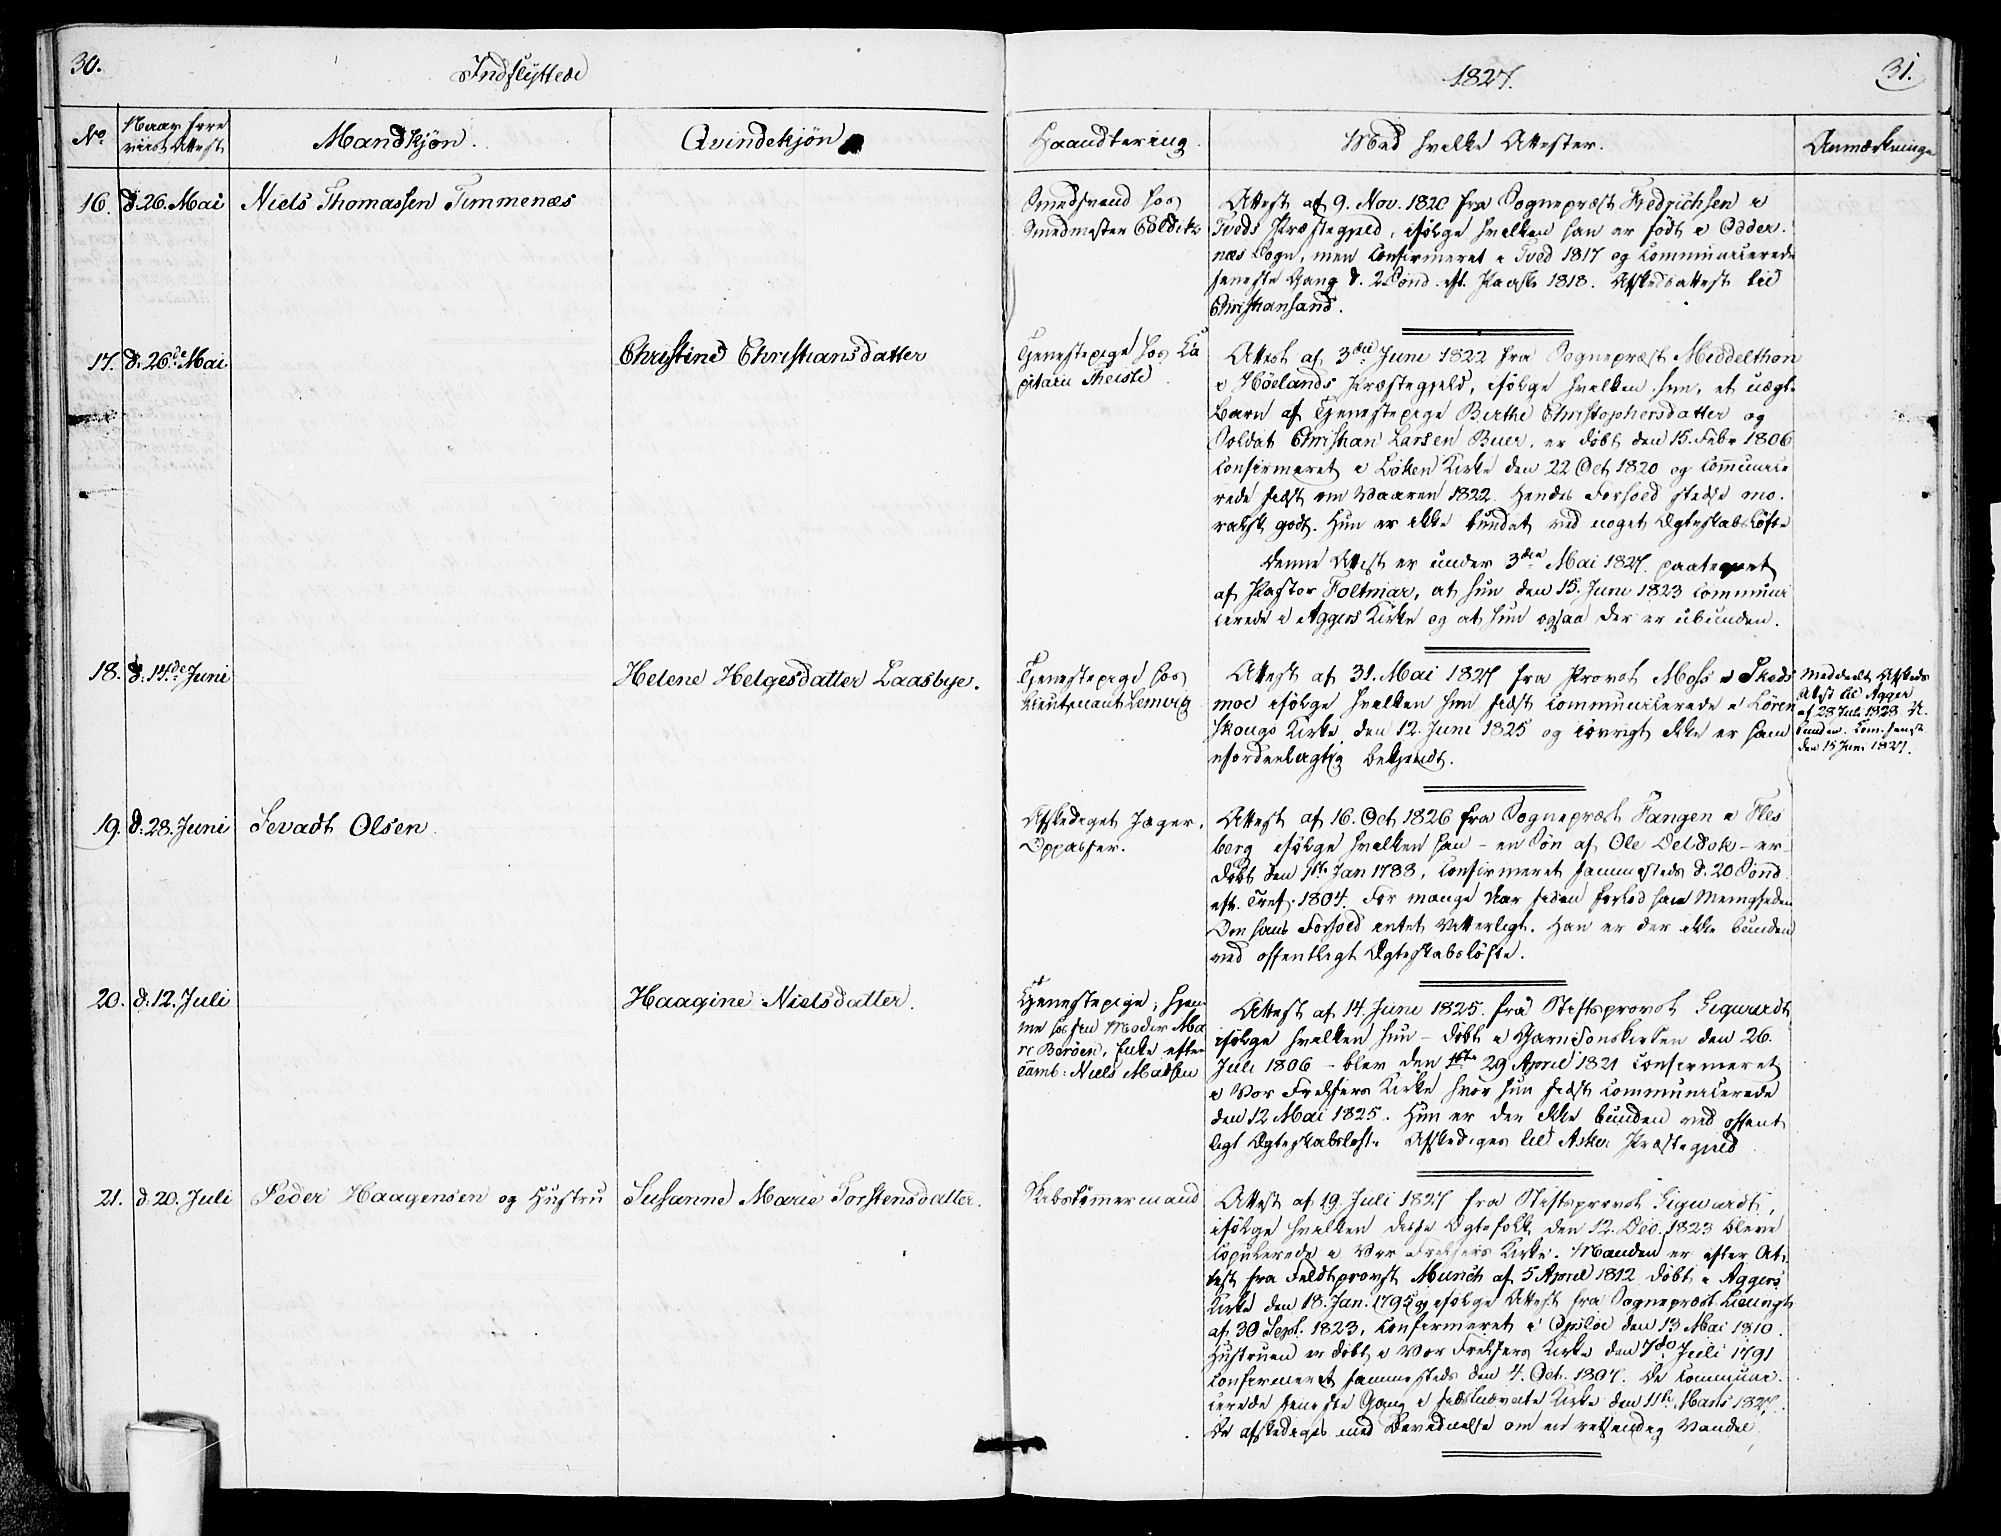 30.
Indflyttede
1827.
31.
No.
Naar fore
viist Attest
Mandkjøn.
Qvindekjøn
Haandtering.
Med hvilke Attester.
Anmærkninge
16. d. 26. Mai Niels Thomassen Timmenæs
Smedsvend hos
Smedmester
Attest af 9. Nov. 1820 fra Sognepræst Fredrichsen i
Tveds Præstegjeld, ifølge hvilken han er født i Odder-
næs Sogn, men Confirmeret i Tved 1817 og Communicerede
seneste Gang d. 2 Sønd. eft. Paaske 1818. Afskedsattest til
Christiansand.
17. d. 26de Mai
Christine Christiansdatter
Tjenestepige hos Ca
pitain Theiste
Attest af 3die Juni 1822 fra Sognepræst Meddelthon
i Høelands Præstegjeld, ifølge hvilken hun, et uægte
Barn af Tjenestepige Berthe Christophersdatter og
Soldat Christian Larsen Buer, er døbt den 15. Febr 1806
Confirmeret i Løken Kirke den 22 Oct 1820 og Communice
rede sidst om Vaaren 1822. Hendes Forhold stedse mo-
ralsk godt. Hun er ikke bundet ved noget Ægteskabsløfte
Denne Attest er under 3die Mai 1827 paategnet
af Pastor Foltmar, at hun den 15. Juni 1823 Communi
cerede i Aggers Kirke og at hun ogsaa der er ubunden.
18. d. 14de Juni
Helene Helgesdatter Laasbye.
Tjenestepige hos
Lieutenant Lemvig
Attest af 31. Mai 1827 fra Provst Moss i Skeds
moe ifølge hvilken hun sidst Communicerede i Løren
skougs Kirke den 12. Juni 1825 og iøvrigt ikke er ham
ufordeelagtig bekjendt.
Meddeelt Afskeds
Attest til Agger
af 28 Juli 1828 U-
bunden. Com. senest
den 15 Juni 1827.
19. d. 28. Juni Sevadt Olsen.
Afskediget Jæger.
Oppasser.
Attest af 16. Oct 1826 fra Sognepræst Fangen i Fles
berg ifølge hvilken han - en Søn af Ole - er
døbt den 1ste Jan 1788, Confirmeret sammesteds d. 20 Sønd.
eft. Tref. 1804. For mange Aar siden forlod han Menigheden
Om hans Forhold intet Vitterligt. Han er der ikke bunden
ved offentligt Ægteskabsløfte.
20. d. 12. Juli
Haagine Nielsdatter.
Tjenestepige; hjem
me hos sin Moder Ma
ri Enke efter
Tamb: Niels Madsen
Attest af 14. Juni 1825 fra Stiftsprovst Sigwardt
ifølge hvilken hun - døbt i Garnisonskirken den 26.
Juli 1806 - blev den 29 April 1821 Confirmeret
i Vor Frelsers Kirke hvor hun sidst Communicerede
den 12 Mai 1825. Hun er der ikke bunden ved offent
ligt Ægteskabsløfte. Afskediges til Asker Præstegjeld
21. d. 20. Juli Peder Haagensen og Hustru Susanne Marie Torstensdatter.
Skibstømermand
Attest af 19. Juli 1827 fra Stiftsprovst Sigwardt,
ifølge hvilken disse Ægtefolk den 12. Dec. 1823 bleve
Copulerede i Vor Frelsers Kirke. Manden er efter At-
test fra Feldtprovst Munch af 5 April 1812 døbt i Aggers
Kirke den 18. Jan. 1795 og ifølge Attest fra Sognepræst
af 30 Sept. 1823, Confirmeret i Opsloe den 13 Mai 1810.
Hustruen er døbt i Vor Frelsers Kirke den 7de Juli 1791
Confirmeret sammesteds den 4. Oct. 1807. De Communi-
cerede seneste Gang i sidstnævnte Kirke den 11te Marts 1827.
De afskediges med Bevidnelse om en retsindig Vandel.